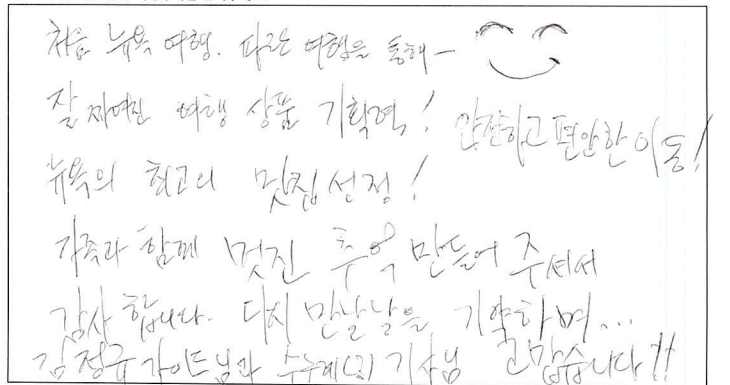 처음 뉴욕 여행. 파란 여행을 통해~
잘 짜여진 여행 상품 기획력!
안전하고 편안한 이동!
뉴욕의 최고의 맛집선정!
가족과 함께 멋진 추억 만들어 주셔서
감사 합니다. 다시 만날날을 기약하며...
김정규 가이드님과 기사님 고맙습니다!!